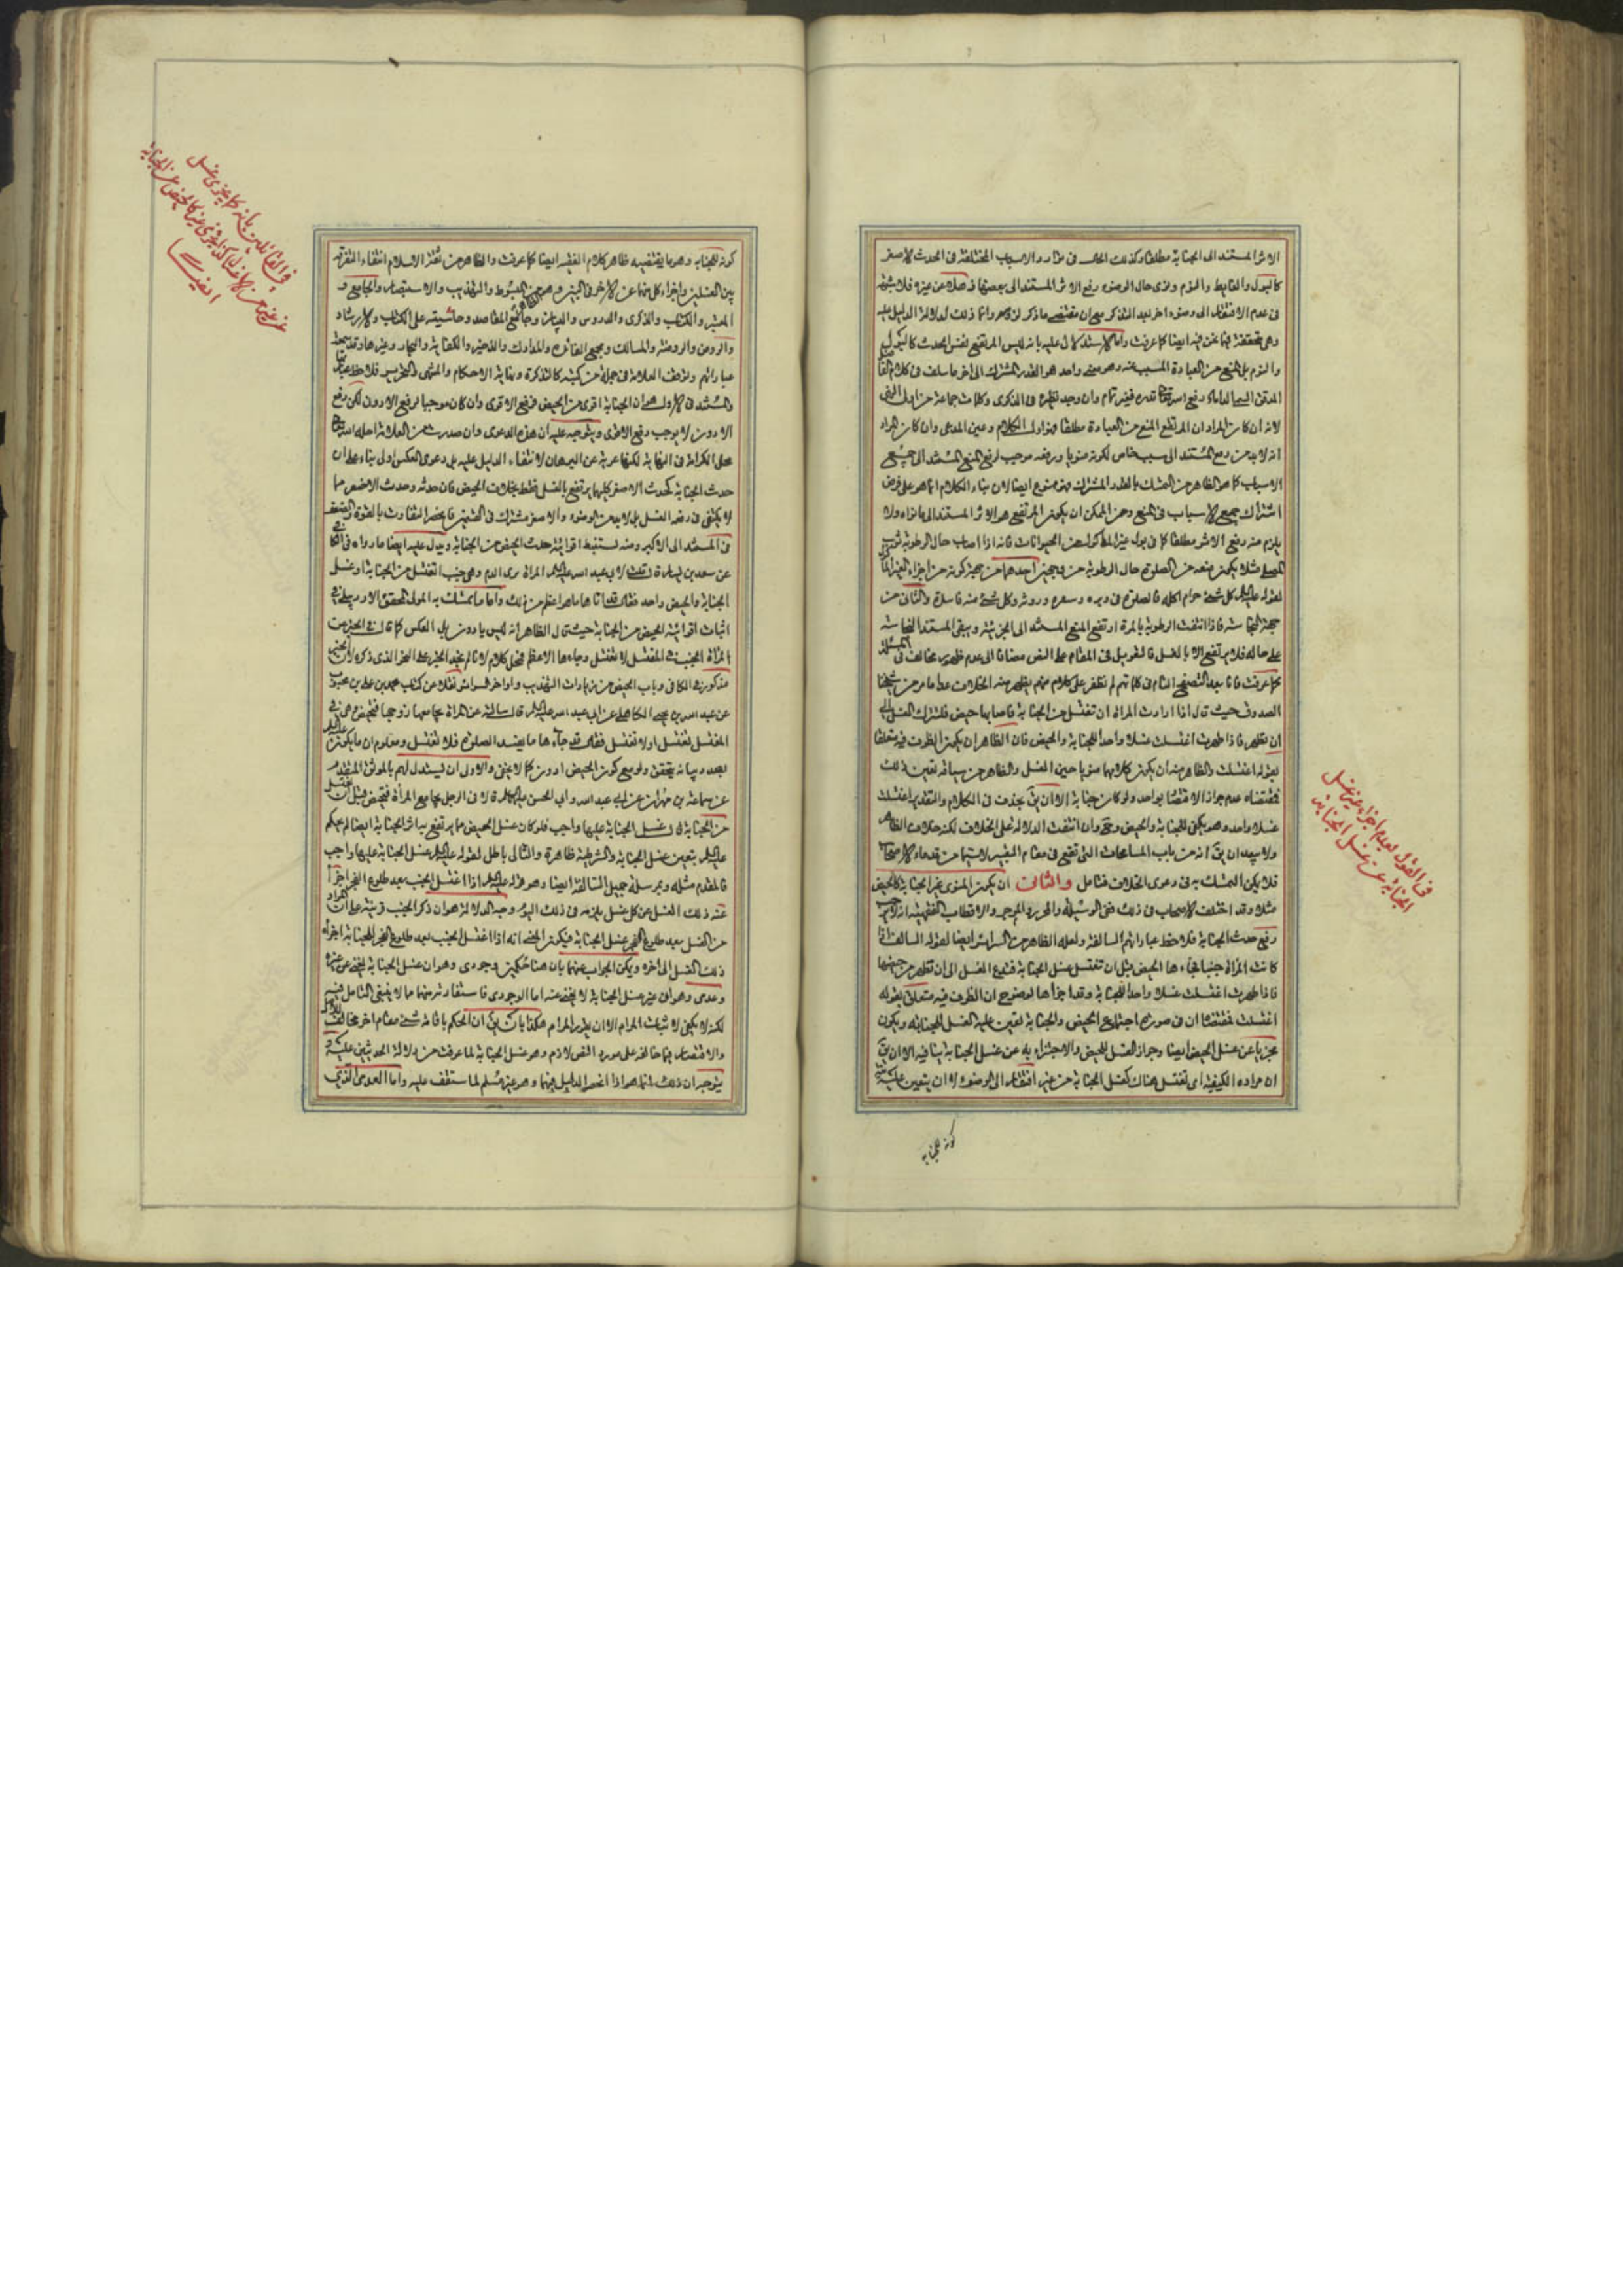 الاثر المستند الى الجنابة مطلقا وكذلك الحال فى
كالبول والغايط والنوم ونوى حال الوضوء رفع الاثر المستند الى بعضها فضلا عن غيره فلا شبهة
فى عدم الافتقار الى وضوء اخر بعد التذكر مع ان مقتضى ما ذكر لزومه وانما ذلك لدلالة الدليل عليه
وهى متحققة فيما نحن فيه ايضا كما عرفت واما الاستدلال عليه بانه ليس المرتفع نفس الحدث كالبول
والنوم بل المنع من العبادة المسبب عنه وهو معنى واحد هو القدر المشترك الى اخر ما سلف فى كلام
لانه ان كان المراد ان المرتفع المنع من العبادة مطلقا فهو اول الكلام وعين المدعى وان كان المراد
انه لا بد من رفع المستند الى سبب خاص لكونه منويا ورفعه موجب لرفع المنع المستند الى جميع
الاسباب كما هو الظاهر من التمسك بالقدر المشترك فهو ممنوع ايضا لان بناء الكلام انما هو على فرض
اشتراك جميع الاسباب فى المنع ومن الممكن ان يكون المرتفع هو الاثر المستند الى ما نواه ولا
يلزم منه رفع الاثر مطلقا كما فى بول غير المأكول من الحيوانات فانه اذا اصاب حال الرطوبة ثوب
المصلى مثلا يكون منعه من الصلوة حال الرطوبة من وجهين احدهما من جهة كونه من اجزاء الغير
لقوله عليه السلام كل شىء حرام اكله فالصلوة فى وبره وشعره وروثه وكل شىء منه فاسدة والثانى من
جهة النجاسة فاذا انتفت الرطوبة بالمرة ارتفع المنع المستند الى الجزئية وبقى المستند الى النجاسة
على حاله فلا يرتفع الا بالغسل فالتعويل فى المقام على النص مضافا الى عدم ظهور مخالف فى المسئلة
كما عرفت فانا بعد التصفح التام فى كلماتهم لم نظفر على كلام منهم يظهر منه الخلاف عدا ما مر من شيخنا
الصدوق حيث قال اذا ارادت المراة ان تغتسل من الجنابة فاصابها حيض فلتترك الغسل الى
ان تطهر فاذا طهرت اغتسلت غسلا واحدا للجنابة والحيض فان الظاهر ان يكون الظرف فيه متعلقا
بقوله اغتسلت والظاهر منه ان يكون كلاهما منويا حين الغسل والظاهر من سياقه تعيين ذلك
فمقتضاه عدم جواز الاقتصار بواحد ولو كان جنابة الا ان يق بحذف فى الكلام والتقدير اغتسلت
غسلا واحدا وهو يكفى للجنابة والحيض وح وان انتفت الدلالة على الخلاف لكنه خلاف الظاهر
ولا يبعد ان يق انه من باب المسامحات التى تقع فى مقام التعبير لا سيما من قدماء الاصحاب
فلا يمكن التمسك به فى دعوى الخلاف فتامل والثانى ان يكون المنوى غير الجنابة كالحيض
مثلا وقد اختلف الاصحاب فى ذلك ففى الوسيلة
رفع حدث الجنابة فلاحظ عباراتهم السالفة ولعله الظاهر من السرائر ايضا لقوله السالف اذا
كانت المراة جنبا فجاءها الحيض قبل ان تغتسل غسل الجنابة فتدع الغسل الى ان تطهر من حيضها
فاذا طهرت اغتسلت غسلا واحدا للجنابة وقد اجزأها لوضوح ان الظرف فيه متعلق بقوله
اغتسلت فمقتضاه ان فى صورة اجتماع الحيض والجنابة تعين عليه الغسل للجنابة ويكون
مجزيا عن غسل الحيض ايضا وجواز الغسل للحيض والاجتزاء به عن غسل الجنابة ينافيه الا ان يق
ان مراده الكيفية اى تغتسل هناك كغسل الجنابة من غير افتقار الى الوضوء لا ان يتعين عليه
كونه للجنابة
فى القول بعدم اجزاء غير غسل
الجنابة عن غسل الجنابة
كونه للجنابة وهو ما يقتضيه ظاهر كلام الفقيه ايضا كما عرفت والظاهر من ثقة الاسلام انتفاء التفرقة
بين الغسلين واجزاء كل منهما عن الاخر فى البين وهو من المبسوط والتهذيب والاستبصار والجامع و
المعتبر والكتاب والذكرى والدروس والبيان وجامع المقاصد وحاشيته على الكتاب والارشاد
والروض والروضة والمسالك ومجمع الفائدة والمدارك والذخيرة والكفاية والبحار وغيرها وقد
عباراتهم وتوقف العلامة فى جملة من كتبه كالتذكرة ونهاية الاحكام والمنتهى والتحرير فلاحظ
والمستند فى الاول هو ان الجنابة اقوى من الحيض فرفع الاقوى وان كان موجبا لرفع الادون لكن رفع
الادون لا يوجب رفع الاقوى ويتوجه عليه ان هذه الدعوى وان صدرت من العلامة احله الله تعالى
محل الكرامة فى النهاية لكنها عرية عن البرهان لانتفاء الدليل عليه بل دعوى العكس اولى بناء على ان
حدث الجنابة كحدث الاصغر كليهما يرتفع بالغسل فقط بخلاف الحيض فان حدثه وحدث الاصغر مما
لا يكتفى فى رفعه الغسل بل لا بد من الوضوء والاصغر مشترك فى القسمين فانحصر التفاوت بالقوة والضعف
فى المستند الى الاكبر ومنه يستنبط اقوائية حدث الحيض من الجنابة ويدل عليه ايضا ما رواه فى
عن سعيد بن يسار قال قلت لابى عبد الله عليه السلام المراة ترى الدم وهى جنب اتغتسل من الجنابة او غسل
الجنابة والحيض واحد فقال قد اتاها ما هو اعظم من ذلك واما ما تمسك به المولى المحقق الاردبيلى فى
اثبات اقوائية الحيض من الجنابة حيث قال الظاهر انه ليس بادون بل العكس كما قال فى الخبر عن
المراة الجنب فى المغتسل لا تغتسل وجاءها الاعظم فمحل كلام لانا لم نجد الخبر على النحو الذى ذكره
مذكور فى الكافى وباب الحيض من زيادات التهذيب واواخر السرائر نقلا عن كتاب محمد بن على بن محبوب
عن عبد الله بن يحيى الكاهلى عن ابى عبد الله عليه السلام قال سالته عن المراة يجامعها زوجها فتحيض وهى فى
المغتسل تغتسل او لا تغتسل فقال قد جاءها ما يفسد الصلوة فلا تغتسل ومعلوم ان
بصدد بيانه يتحقق ولو مع كون الحيض ادون كما لا يخفى والاولى ان يستدل لهم بالموثق المتقدم
عن سماعة بن مهران عن ابى عبد الله وابى الحسن عليهما السلام قالا فى الرجل يجامع المراة فتحيض قبل ان تغتسل
من الجنابة قال غسل الجنابة عليها واجب فلو كان غسل الحيض مما يرتفع به اثر الجنابة ايضا لم يحكم
عليه السلام بتعين غسل الجنابة والشرطية ظاهرة والتالى باطل لقوله عليه السلام غسل الجنابة عليها واجب
فالمقدم مثله وبمرسلة جميل السالفة ايضا وهو قوله عليه السلام اذا اغتسل الجنب بعد طلوع الفجر اجزأ
عنه ذلك الغسل عن كل غسل يلزمه فى ذلك اليوم وجه الدلالة هو ان ذكر الجنب قرينة على ان المراد
من الغسل بعد طلوع الفجر غسل الجنابة فيكون المعنى انه اذا اغتسل الجنب بعد طلوع الفجر للجنابة اجزأه
ذلك الغسل الى اخره ويمكن الجواب عنهما بان هنا حكمين وجودى وهو ان غسل الجنابة يجزى عن غيره
وعدمى وهو ان غير غسل الجنابة لا يجزى عنه اما الوجودى فاستفادته منهما مما لا ينبغى التامل فيه
لكنه لا يكفى لاثبات المرام الا ان يقرر المرام هكذا بان يق ان الحكم باقامة شىء مقام اخر مخالف
والاقتصار فيما خالفه على مورد النص لازم وهو غسل الجنابة لما عرفت من دلالة الحديثين عليه و
يتوجه ان ذلك انما هو اذا انحصر الدليل فيهما وهو غير مسلم لما ستقف عليه واما العدمى الذى
فى القائلين بانه كما يجزى غسل
ايضا